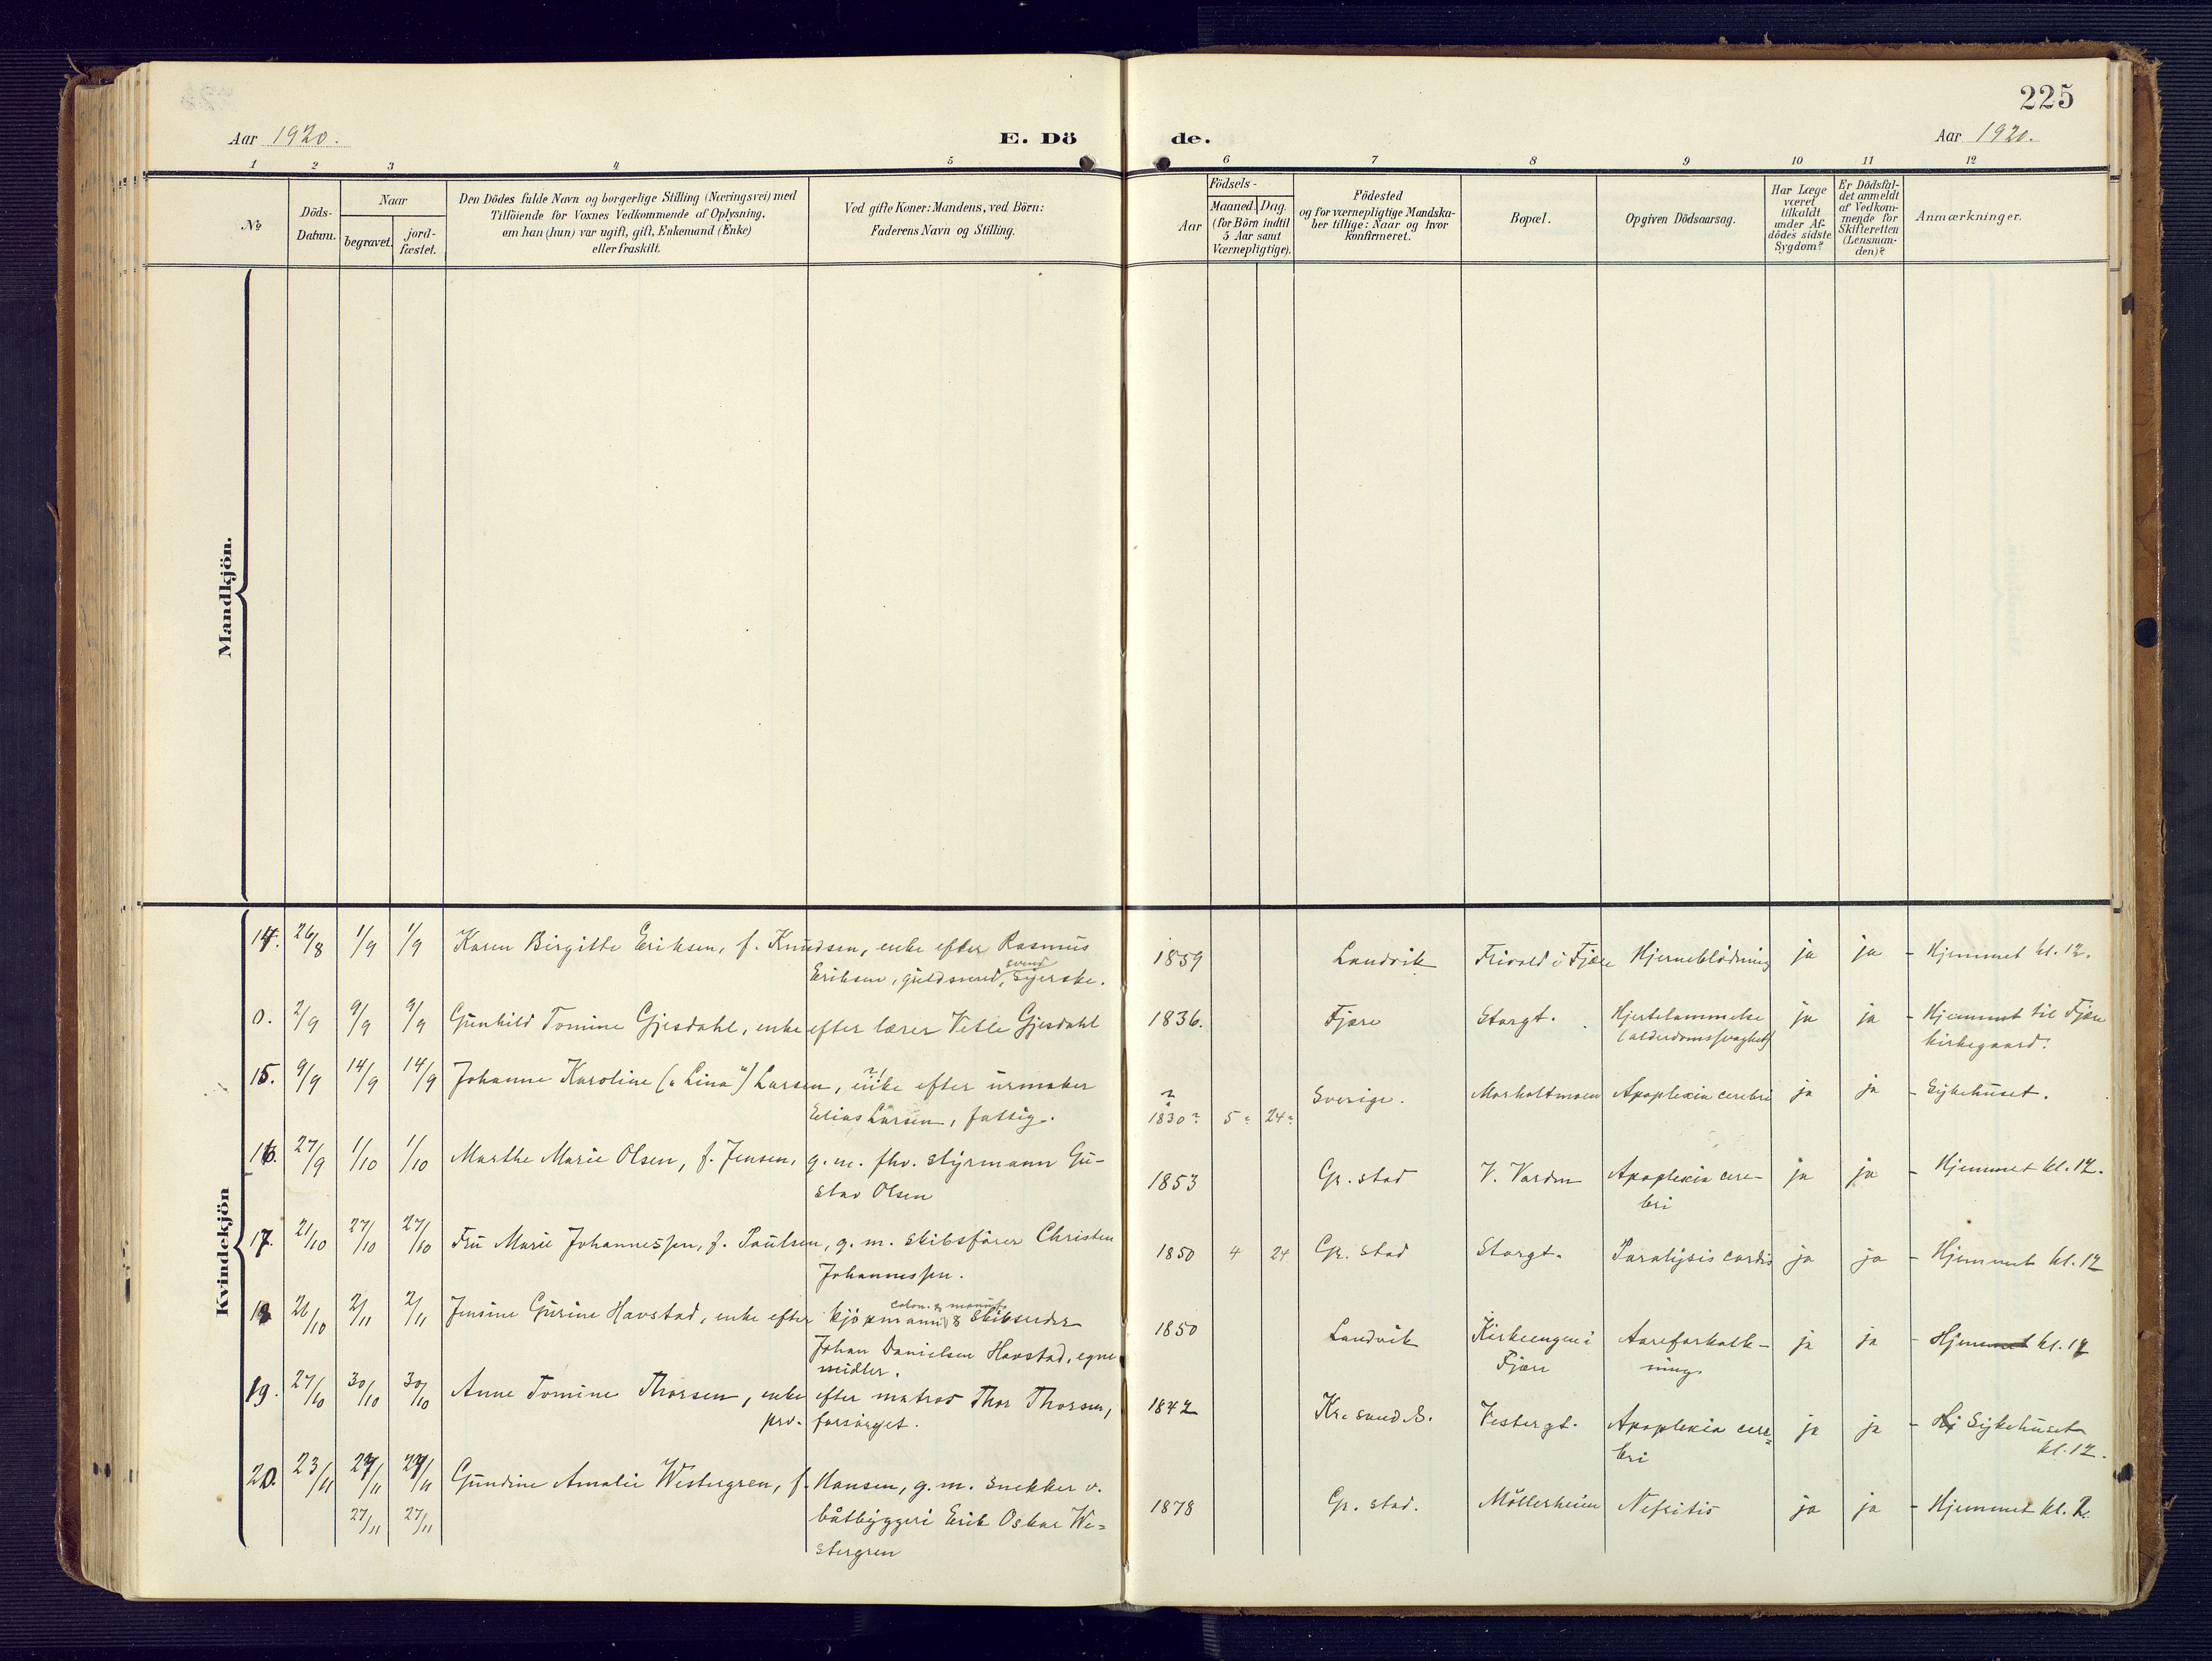 225
Aar 1920.
E. Dö
de.
Aar 1920.
1 2 3 4 5 6 7 8 9 10 11 12
No
Döds-
Datum.
Naar
begravet.
jord-
fæstet.
Den Dödes fulde Navn og borgerlige Stilling (Næringsvei) med
Tilföiende for Voxnes Vedkommende af Oplysning,
om han (hun) var ugift, gift, Enkemand (Enke)
eller fraskilt.
Ved gifte Koner: Mandens, ved Börn:
Faderens Navn og Stilling.
Aar
Födsels-
Maaned. Dag.
(for Börn indtil
5 Aar samt
Værnepligtige).
Födested
og for værnepligtige Mandska-
ber tillige: Naar og hvor
konfirmeret.
Bopæl.
Opgiven Dödsaarsag.
Har Læge
været
tilkaldt
under Af-
dödes sidste
Sygdom?
Er Dödsfal-
det anmeldt
af Vedkom-
mende for
Skifteretten
(Lensman-
den)?
Anmærkninger.
Mandkjön.
Kvindekjön
14. 26/8 1/9 1/9 Karen Birgitte Eriksen, f. Knudsen, enke efter Rasmus
svend
Eriksen, guldsmed, syerske.
1859 Landvik Frivold i Fjære Hjerneblödning ja ja - Hjemmet kl. 12.
0. 2/9 9/9 9/9 Gunhild Tomine Gjesdahl, enke efter lærer Vetle Gjesdahl
1836. Fjære Storgt. Hjertelammelse ja ja - Hjemmet til Fjære
(alderdomssvaghet) kirkegaard.
15. 9/9 14/9 14/9 Johanne Karoline ("Lina") Larsen, enke efter urmaker
Elias Larsen, fattig.
1830? 5? 24? Sverige. Morholtmoen Apoplexia cerebri ja ja - Sykehuset.
16. 27/9 1/10 1/10 Marthe Marie Olsen, f. Jensen, g. m. fhv. styrmann Gu-
stav Olsen
1853 Gr. stad V. Varden Apoplexia cere- ja ja - Hjemmet kl. 12.
bri
17. 21/10 27/10 27/10 Fru Marie Johannessen, f. Paulsen, g. m. skibsförer Christen
Johannessen.
1850 4 24 Gr. stad Storgt. Paralysis cordis ja ja - Hjemmet kl. 12
18 26/10 2/11 2/11 Jensine Gurine Havstad, enke efter kjöpmann & Skibsreder
Johan Danielsen Havstad, egne
midler.
1850 Landvik Kirkeengen i Aareforkalk- ja ja - Hjemmet kl. 12
Fjære ning
19. 27/10 30/10 30/10 Anne Tomine Thorsen, enke efter matros Thor Thorsen,
prv. forsörget.
1842 Kr.sand S. Vestergt. Apoplexia cere= ja ja - Hj Sykehuset
bri kl. 12.
20. 23/11 27/11 27/11 Gundine Amalie Westergren, f. Hansen, g. m. snekker v.
27/11 27/11 båtbyggeri Erik Oskar We=
stergren
1878 Gr. stad. Möllerheien Nefritis ja ja - Hjemmet kl. 2.